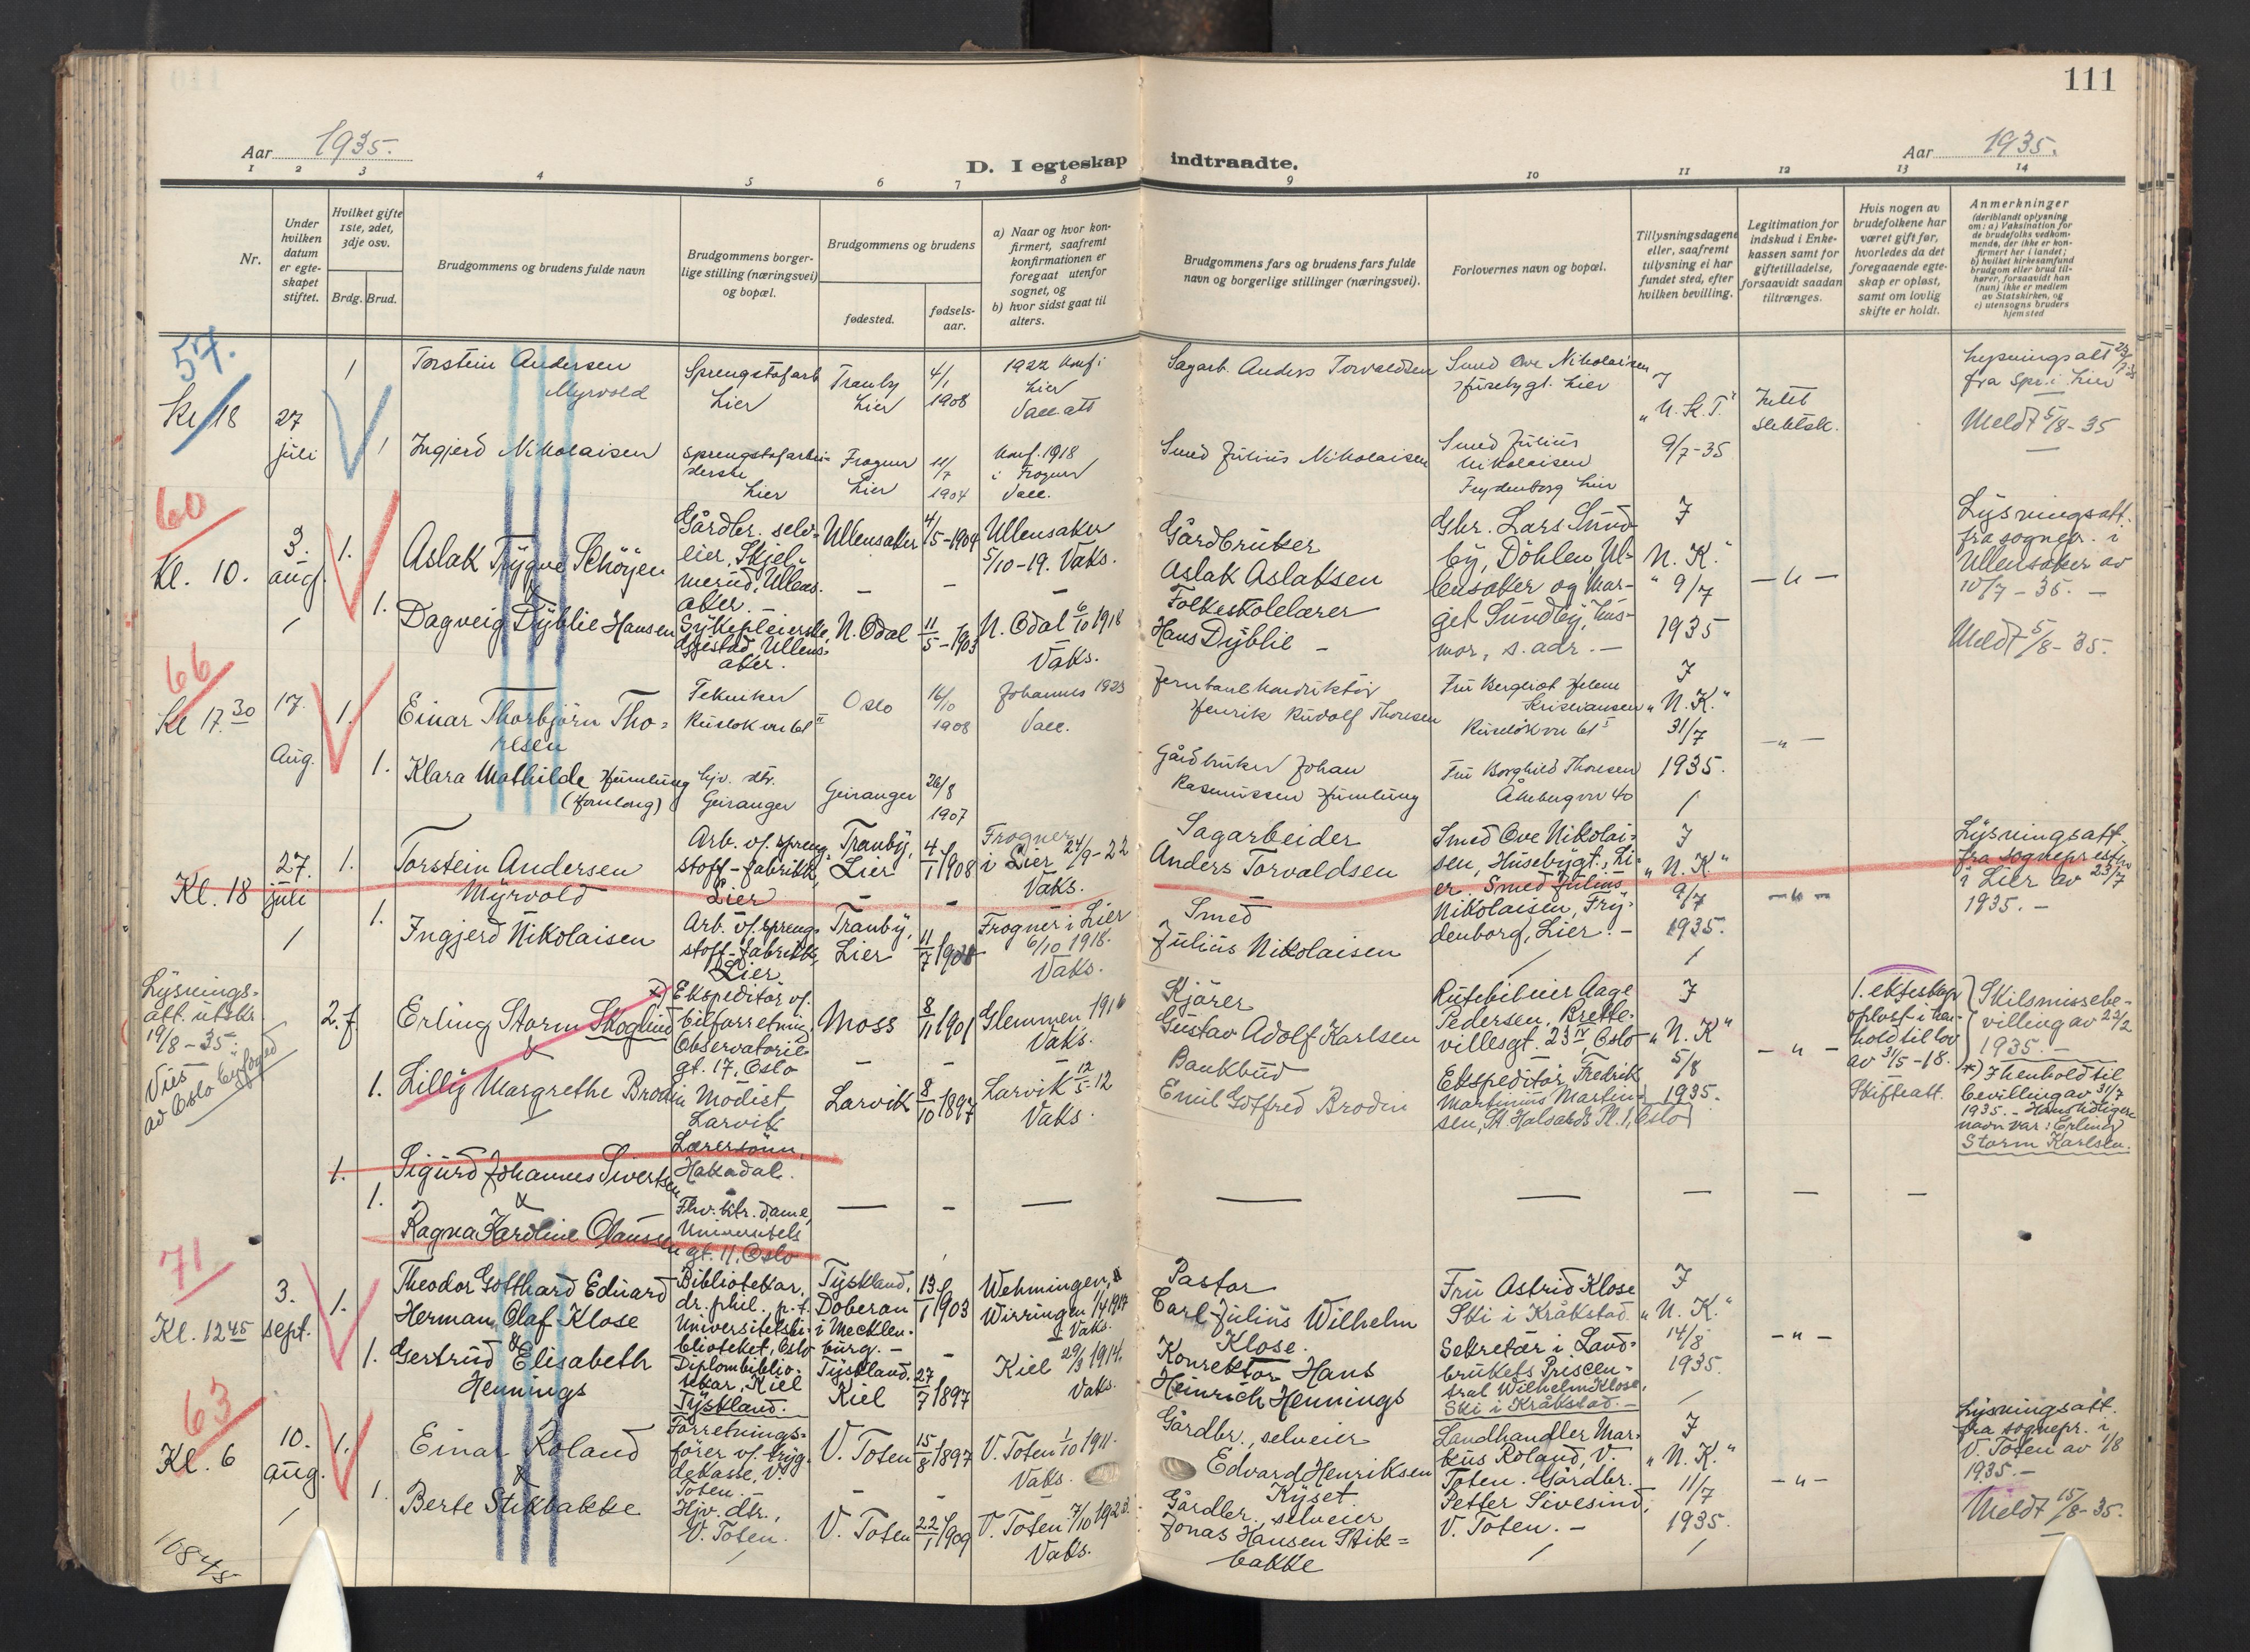 111
Aar 1935.
D. I egteskap indtraadte.
Aar 1935.
1 2 3 4 5 6 7 8 9 10 11 12 13 14
Nr.
Under hvilken datum er egteskapet stiftet.
Hvilket gifte 1ste, 2det, 3dje osv.
Brdg. Brud.
Brudgommens og brudens fulde navn
Brudgommens borgerlige stilling (næringsvei) og bopæl.
Brudgommens og brudens
fødested.
fødselsaar.
a) Naar og hvor konfirmert, saafremt konfirmationen er foregaat utenfor sognet, og
b) hvor sidst gaat til alters.
Brudgommens fars og brudens fars fulde navn og borgerlige stillinger (næringsvei).
Forlovernes navn og bopæl.
Tillysningsdagene eller, saafremt tillysning ei har fundet sted, efter hvilken bevilling.
Legitimation for indskud i Enkekassen samt for giftetilladelse, forsaavidt saadan tiltrænges.
Hvis nogen av brudefolkene har været gift før, hvorledes da det foregaaende egteskap er opløst, samt om lovlig skifte er holdt.
Anmerkninger
(deriblandt oplysning om: a) Vaksination for de brudefolks vedkommende, der ikke er konfirmert her i landet; b) hvilket kirkesamfund brudgom eller brud tilhører, forsaavidt han (hun) ikke er medlem av Statskirken, og c) utensogns bruders hjemsted
57.
Kl 18
27 juli
1
Torstein Andersen Myrvold
Sprengstofarb Lier
Tranby Lier
4/1 1908
1922 konf i Lier Vacc. att
Sagarb. Anders Torvaldsen
Smed Ove Nikolaisen Husebygt. Lier
I "N.K.T." 9/7-35
Lysningsatt 23/7 35 fra Spr. i Lier
Meldt 5/8-35
1
Ingjerd Nikolaisen
Sprengstofarbeiderske Lier
Frogner Lier
11/7 1904
Konf. 1918 i Frogner Vacc.
Smed Julius Nikolaisen
Smed Julius Nikolaisen Frydenborg Lier
60
Kl. 10.
3. aug.
1.
Aslak Trygve Schöyen
&
Gårdbr. selveier, Skjelmerud, Ullensaker. —
Ullensaker
4/5-1904
Ullensaker 5/10-19. Vaks.
Gårdbruker Aslak Aslaksen
Gbr. Lars Sundby, Döhlen, Ullensaker og Marget Sundby, husmor, s. adr. —
I "N. K." 9/7 1935
— " —
Lysningsatt. fra sognepr. i Ullensaker av 10/7-35. —
Meldt 5/8-35.
1.
Dagveig Dyblie Hansen
Sykepleierske, Ullensaker.
N. Odal
11/5-1903
N. Odal 6/10 1918 Vaks.
Folkeskolelærer Hans Dyblie —
66
Kl 17.30
17. Aug.
1.
Einar Thorbjörn Thoresen
Tekniker Ruselökvn 61 II
Oslo
16/10 1908
Johannes 1923 Vacc.
Jernbanekonduktör Henrik Rudolf Thoresen
Fru Bergliot Helene Kristiansen Ruselökvn 61 I
I "N. K." 31/7 1935.
— " —
1.
Klara Mathilde Humlung (Homlong)
Hjv. dtr. Geiranger
Geiranger
26/8 1907
Gårdbruker Johan Rasmussen Humlung
Fru Borghild Thoresen Åkebergvn 40
Kl. 18
27. juli
1.
Torstein Andersen Myrvold
Arb. v/. sprengstoff-fabrikk, Lier
Tranby, Lier
4/1 1908
Frogner i Lier 24/9-22 Vaks.
Sagarbeider Anders Torvaldsen
Smed Ove Nikolaisen, Husebygt., Lier. Smed Julius Nikolaisen, Frydenborg, Lier. —
I "N. K." 9/7 1935.
— " —
Lysningsatt. fra sognepresten i Lier av 23/7 1935. —
1.
Ingjerd Nikolaisen
Arb. v/. sprengstoff-fabrikk, Lier
Tranby, Lier
11/7
Frogner i Lier 6/10 1918. Vaks.
Smed Julius Nikolaisen
Lysningsatt. utstedt 19/8-35.
Vies av Oslo byfoged
2. f.
Erling Storm Skoglund *)
&
Ekspeditör v/. bilforretning Observatoriegt. 17, Oslo
Moss
8/11 1901
Glemmen 1916 Vaks.
Kjörer Gustav Adolf Karlsen
Rutebileier Aage Pedersen, Bretteville­sgt. 23 IV, Oslo
Ekspeditör Fredrik Martinius Martinsen, St. Halvards Pl. 1, Oslo
I "N. K" 5/8 1935.
— " —
1. ekteskap oplöst i henhold til lov av 31/5-18. Skifteatt.
Skilsmissebevilling av 22/2 1935. —
*) I henhold til bevilling av 31/7 1935. — Hans tidligere navn var: Erling Storm Karlsen.
1.
Lilly Margrethe Brodin
Modist Larvik
Larvik
8/10 1897
Larvik 12/5-12 Vaks.
Bankbud Emil Gotfred Brodin
1.
Sigurd Johannes Sivertsen
&
Lærersönn, Hakadal.
1.
Ragna Karoline Clausen
Universitetsgt. 11, Oslo
71
Kl. 12 45
3. sept.
1.
Theodor Gotthard Eduard Herman Olaf Klose
&
Bibliotekar, dr. phil., p.t. Universitetsbiblioteket, Oslo
Tyskland, Doberan i Mecklenburg. —
13/1 1903
Wehmingen, Wirringen 1/4 1917 Vaks.
Pastor Carl Julius Wilhelm Klose.
Fru Astrid Klose Ski i Kråkstad.
Sekretær i Landbrukets Priscentral Wilhelm Klose, Ski i Kråkstad. —
I "N. K." 14/8 1935.
— " —
1.
Gertrud Elisabeth Hennings
Diplombibliotekar, Kiel Tyskland.
Tyskland. Kiel
27/7 1897
Kiel 29/3 1914. Vaks.
Konrektor Hans Heinrich Hennings
63
Kl. 6
10. aug.
1.
Einar Roland
&
Forretningsförer v/. trygdekasse, V. Toten. —
V. Toten
15/8 1897
V. Toten 1/10 1911. Vaks.
Gårdbr., selveier Edvard Henriksen Kyset
Landhandler Markus Roland, V. Toten. Gårdbr. Petter Sivesind, V. Toten. —
I "N. K." 11/7 1935.
— " —
Lysningsatt. fra sognepr. i V. Toten av 1/8 1935. —
Meldt 15/8-35.
1.
Berte Stikbakke
Hjv. dtr., V. Toten.
V. Toten
22/1 1909
V. Toten 7/10 1923. Vaks.
Gårdbr., selveier Jonas Hansen Stikbakke